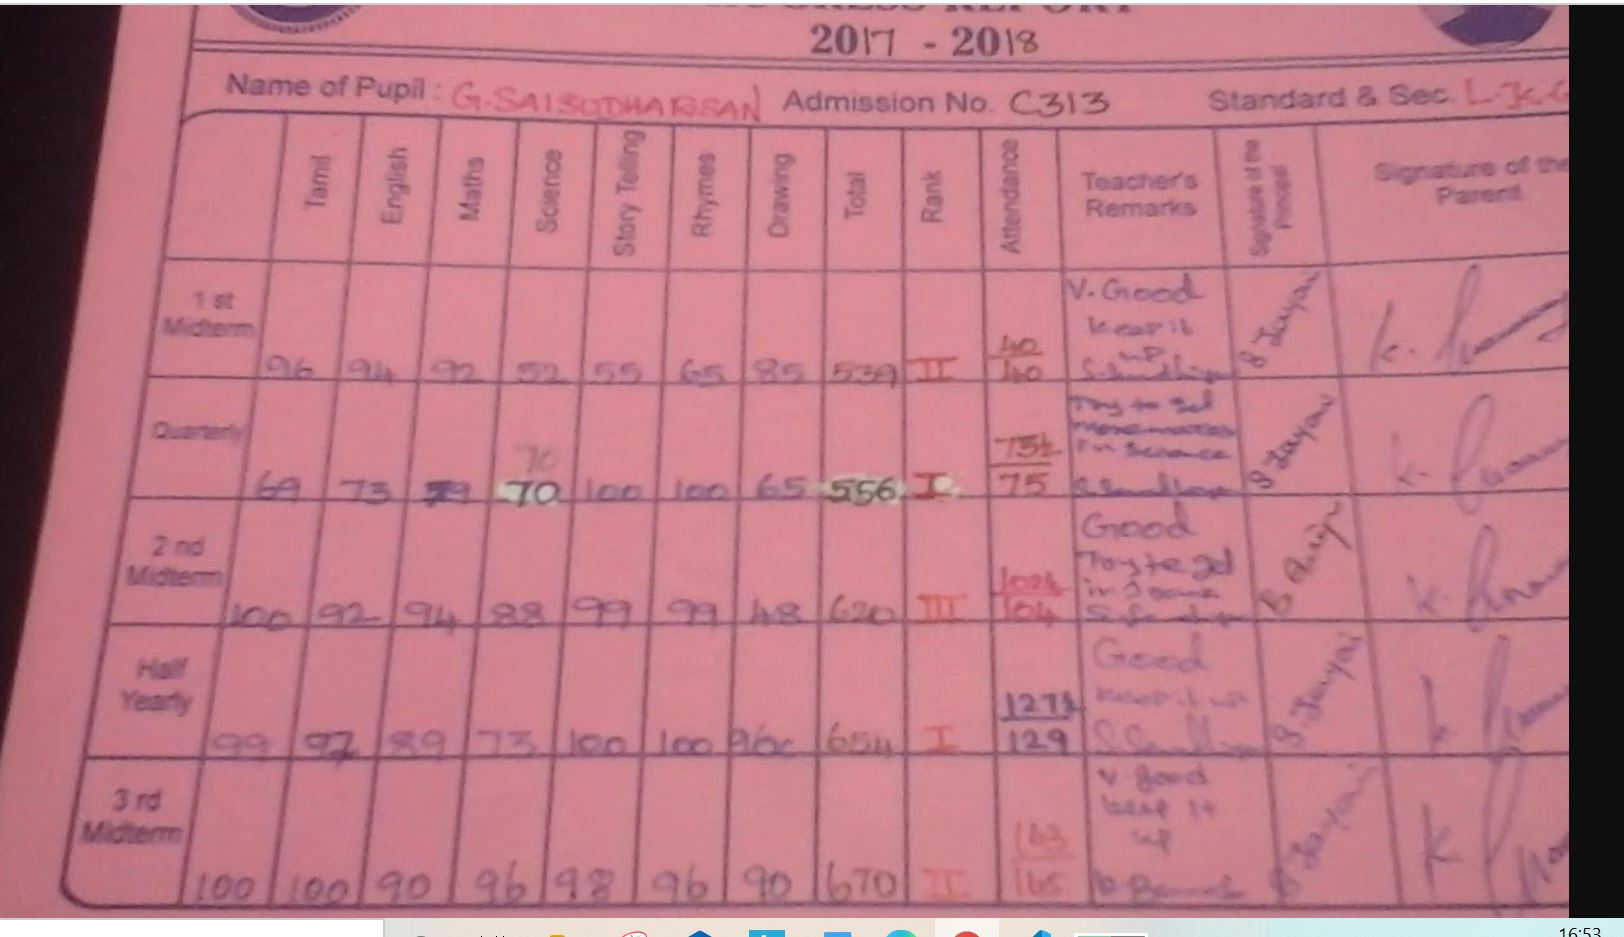 PROGRESS REPORT
2017 - 2018
Name of Pupil : G. SAISUDHARSAN Admission No. C313 Standard & Sec. L.K.G
Tamil English Maths Science Story Telling Rhymes Drawing Total Rank Attendance Teacher's Remarks Signature of the Principal Signature of the Parent
1 st Midterm 96 94 92 52 55 65 85 539 II 40/40 V. Good keep it up
70
Quarterly 69 73 79 70 100 100 65 556 I 75 Try to get in Science
2 nd Midterm 100 92 94 88 99 99 48 620 III 104 Good Try to get in
Half Yearly 99 97 89 73 100 100 96 654 I 129 Good keep it up
3 rd Midterm 100 100 90 96 98 96 90 670 II 163/165 V. good keep it up
16:53